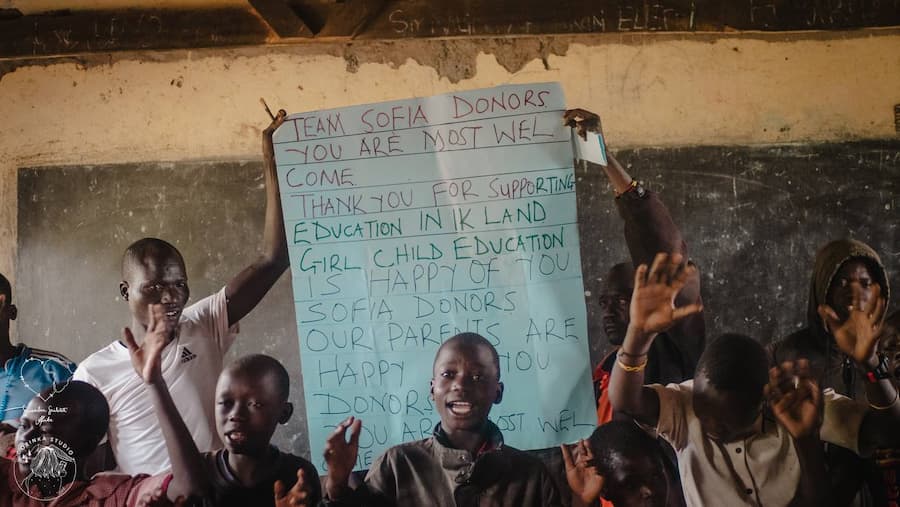 TEAM SOFIA DONORS
YOU ARE MOST WEL
COME
THANK YOU FOR SUPPORTING
EDUCATION IN IK LAND
GIRL CHILD EDUCATION
IS HAPPY OF YOU
SOFIA DONORS
OUR PARENTS ARE
HAPPY YOU
DONORS
YOU ARE MOST WEL